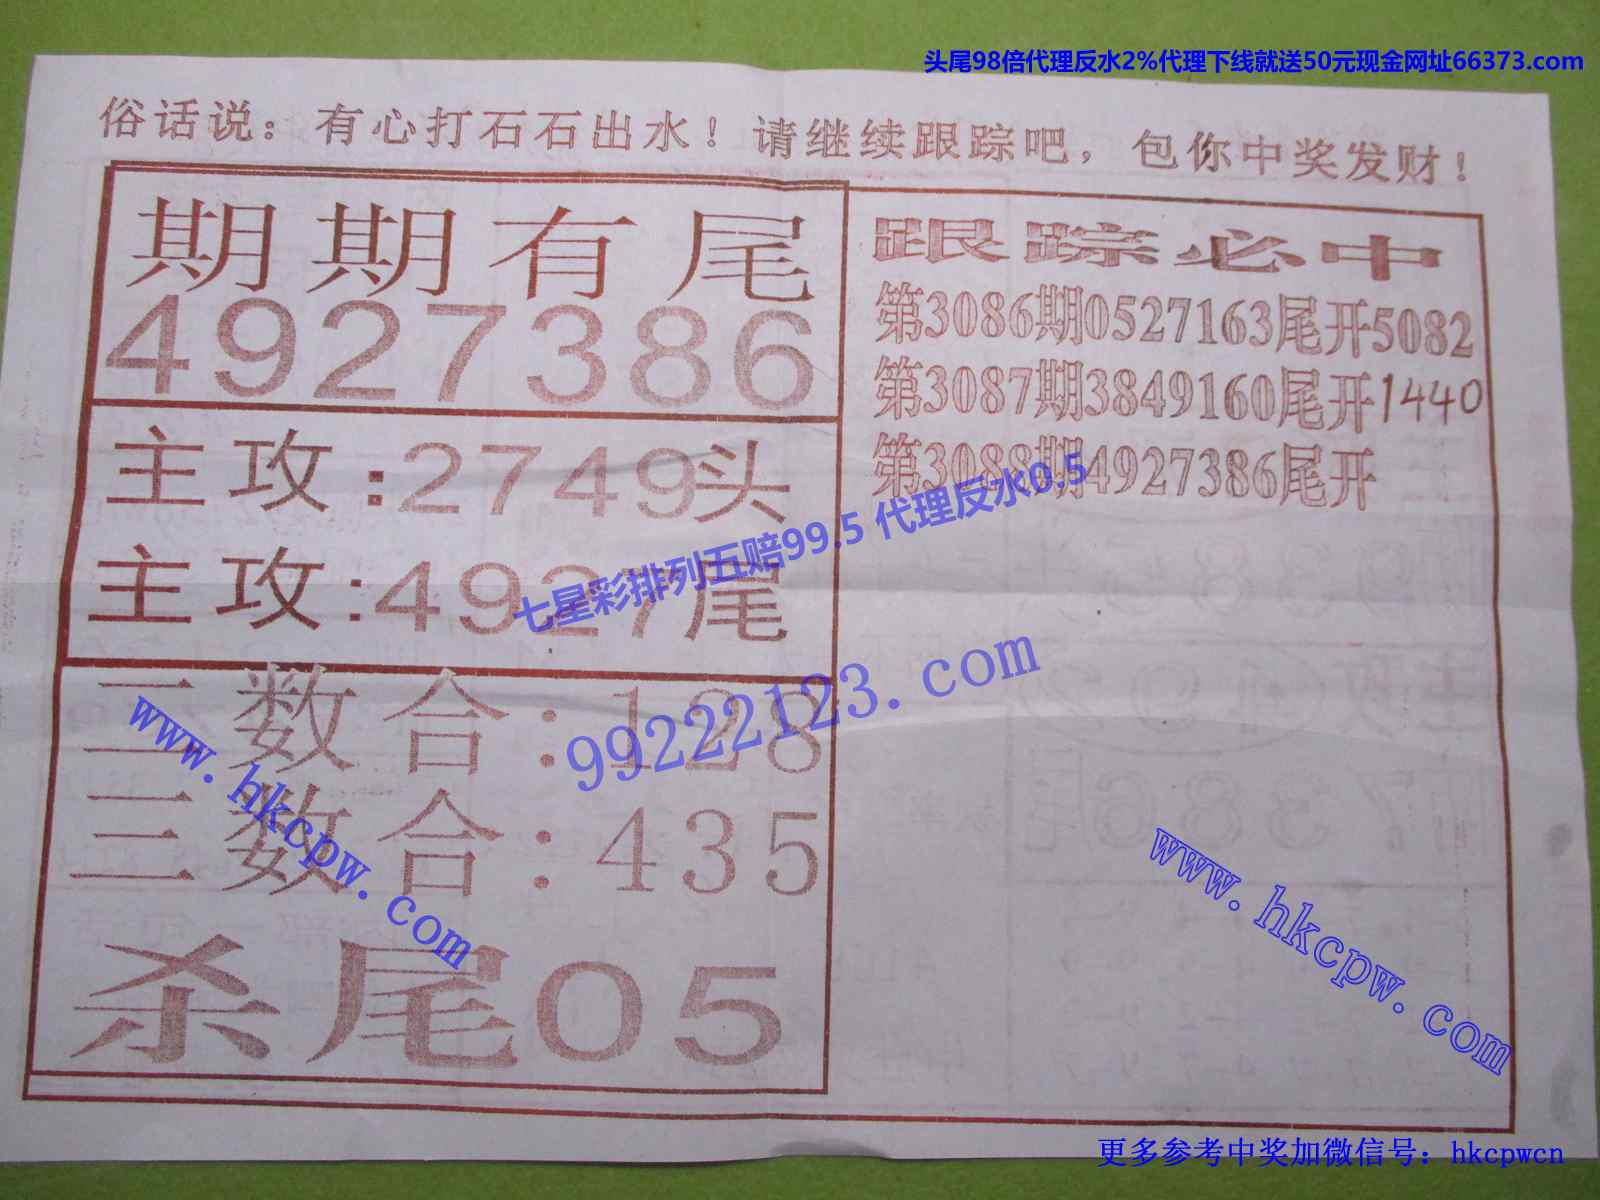 头尾98倍代理反水2%代理下线就送50元现金网址66373.com
俗话说：有心打石石出水！请继续跟踪吧，包你中奖发财！
期期有尾
4927386
主攻:2749头
主攻:4927尾
二数合:128
三数合:435
杀尾05
跟踪必中
第3086期0527163尾开5082
第3087期3849160尾开1440
第3088期4927386尾开
七星彩排列五赔99.5 代理反水0.5
99222123.com
www.hkcpw.com
www.hkcpw.com
更多参考中奖加微信号：hkcpwcn